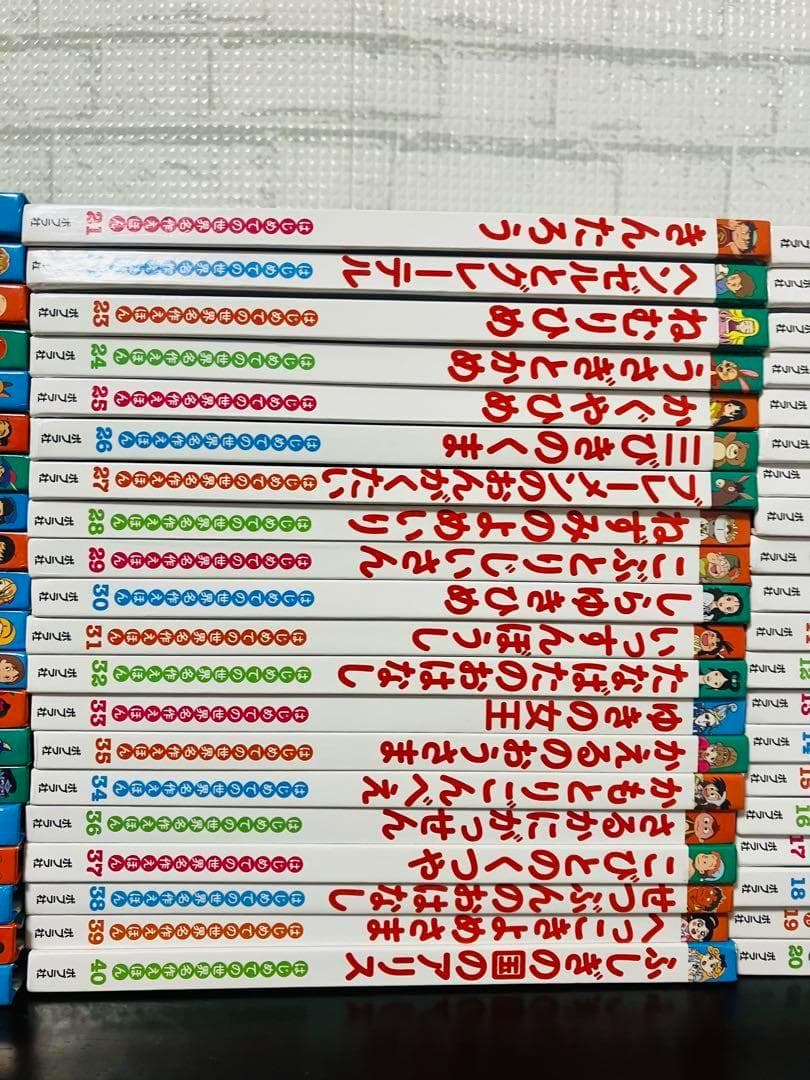 きんたろう はじめての世界名作えほん 21 ポプラ社
ヘンゼルとグレーテル はじめての世界名作えほん
ねむりひめ はじめての世界名作えほん 23 ポプラ社
うさぎとかめ はじめての世界名作えほん 24 ポプラ社
かぐやひめ はじめての世界名作えほん 25 ポプラ社
三びきのくま はじめての世界名作えほん 26 ポプラ社
ブレーメンのおんがくたい はじめての世界名作えほん 27 ポプラ社
ねずみのよめいり はじめての世界名作えほん 28 ポプラ社
こぶとりじいさん はじめての世界名作えほん 29 ポプラ社
しらゆきひめ はじめての世界名作えほん 30 ポプラ社
いっすんぼうし はじめての世界名作えほん 31 ポプラ社
たなばたのおはなし はじめての世界名作えほん 32 ポプラ社
ゆきの女王 はじめての世界名作えほん 33 ポプラ社
かえるのおうさま はじめての世界名作えほん 35 ポプラ社
かもとりごんべえ はじめての世界名作えほん 34 ポプラ社
さるかにがっせん はじめての世界名作えほん 36 ポプラ社
こびとのくつや はじめての世界名作えほん 37 ポプラ社
せつぶんのおはなし はじめての世界名作えほん 38 ポプラ社
へっこきよめさま はじめての世界名作えほん 39 ポプラ社
ふしぎの国のアリス はじめての世界名作えほん 40 ポプラ社
ポプラ社
ポプラ社
ポプラ社
ポプラ社
ポプラ社
ポプラ社
ポプラ社
ポプラ社
ポプラ社
ポプラ社
ポプラ社
12 ポプラ社
13 ポプラ社
14 ポプラ社
15 ポプラ社
16 ポプラ社
17 ポプラ社
18 ポプラ社
19 ポプラ社
20 ポプラ社